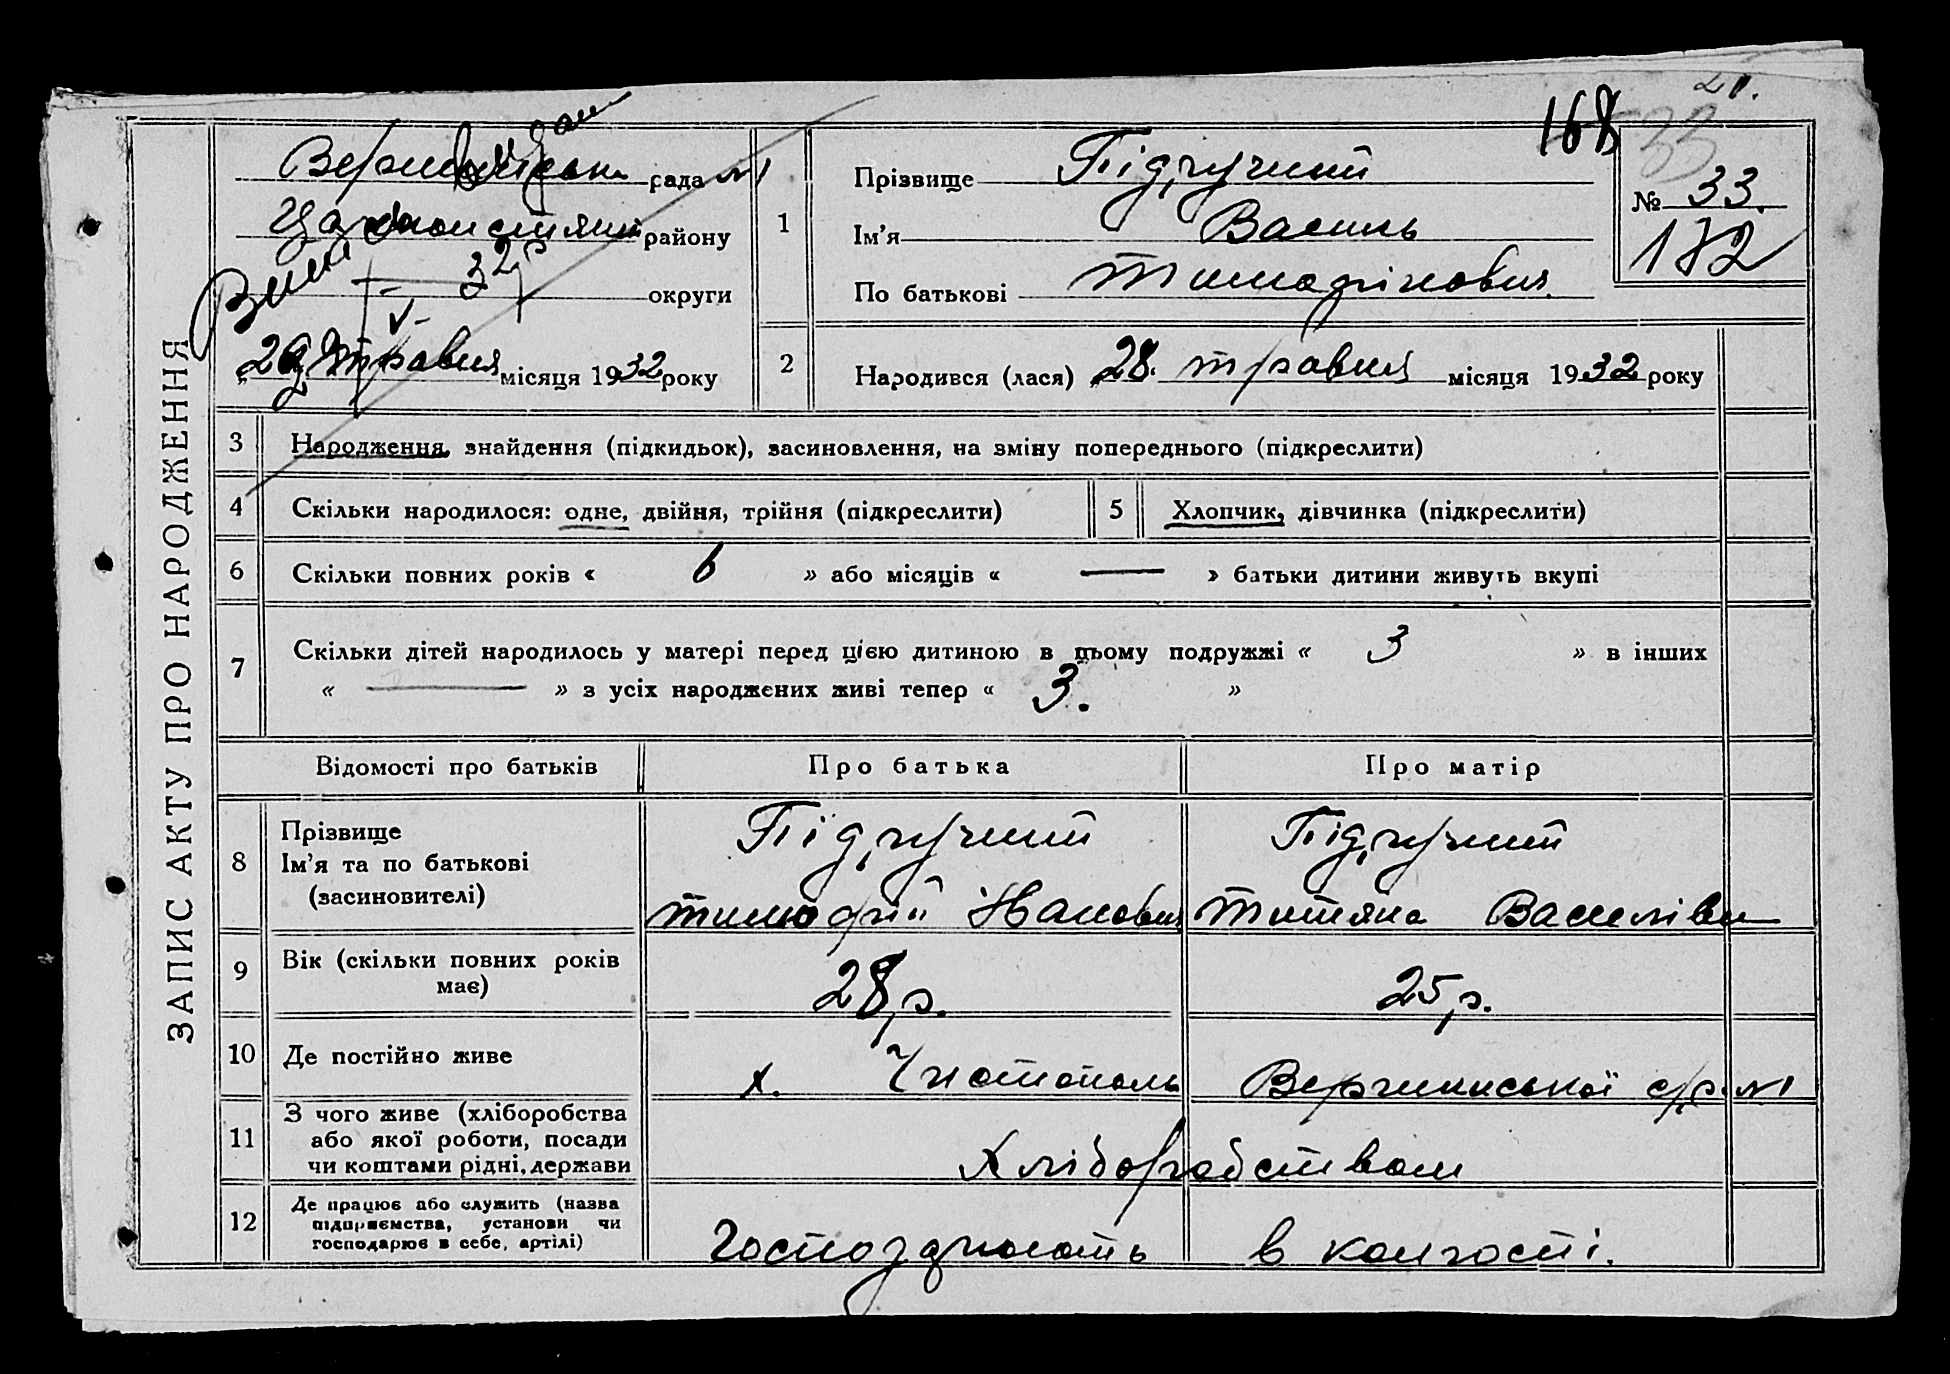 21.
168
33
ЗАПИС АКТУ ПРО НАРОДЖЕННЯ
рада №1
району
32 р
округи
29 травня місяця 1932 року
1
Прізвище Підручний
Ім'я Василь
По батькові Тимофійович
№ 33.
172
2
Народився (лася) 28. травня місяця 1932 року
3 Народження, знайдення (підкидьок), засиновлення, на зміну попереднього (підкреслити)
4 Скільки народилося: одне, двійня, трійня (підкреслити)
5 Хлопчик, дівчинка (підкреслити)
6 Скільки повних років « 6 » або місяців « — » батьки дитини живуть вкупі
7 Скільки дітей народилось у матері перед цією дитиною в цьому подружжі « 3 » в інших
« — » з усіх народжених живі тепер « 3. »
Відомості про батьків Про батька Про матір
8 Прізвище
Ім'я та по батькові
(засиновителі)
Підручний
Тимофій Іванович
Підручний
Титяна Василівн
9 Вік (скільки повних років
має)
28 р. 25 р.
10 Де постійно живе х. Чистополь Вершинської с/р. №1
11 З чого живе (хліборобства
або якої роботи, посади
чи коштами рідні, держави
Хліборобством
12 Де працює або служить (назва
підприємства, установи чи
господарює в себе, артілі)
в колгоспі.